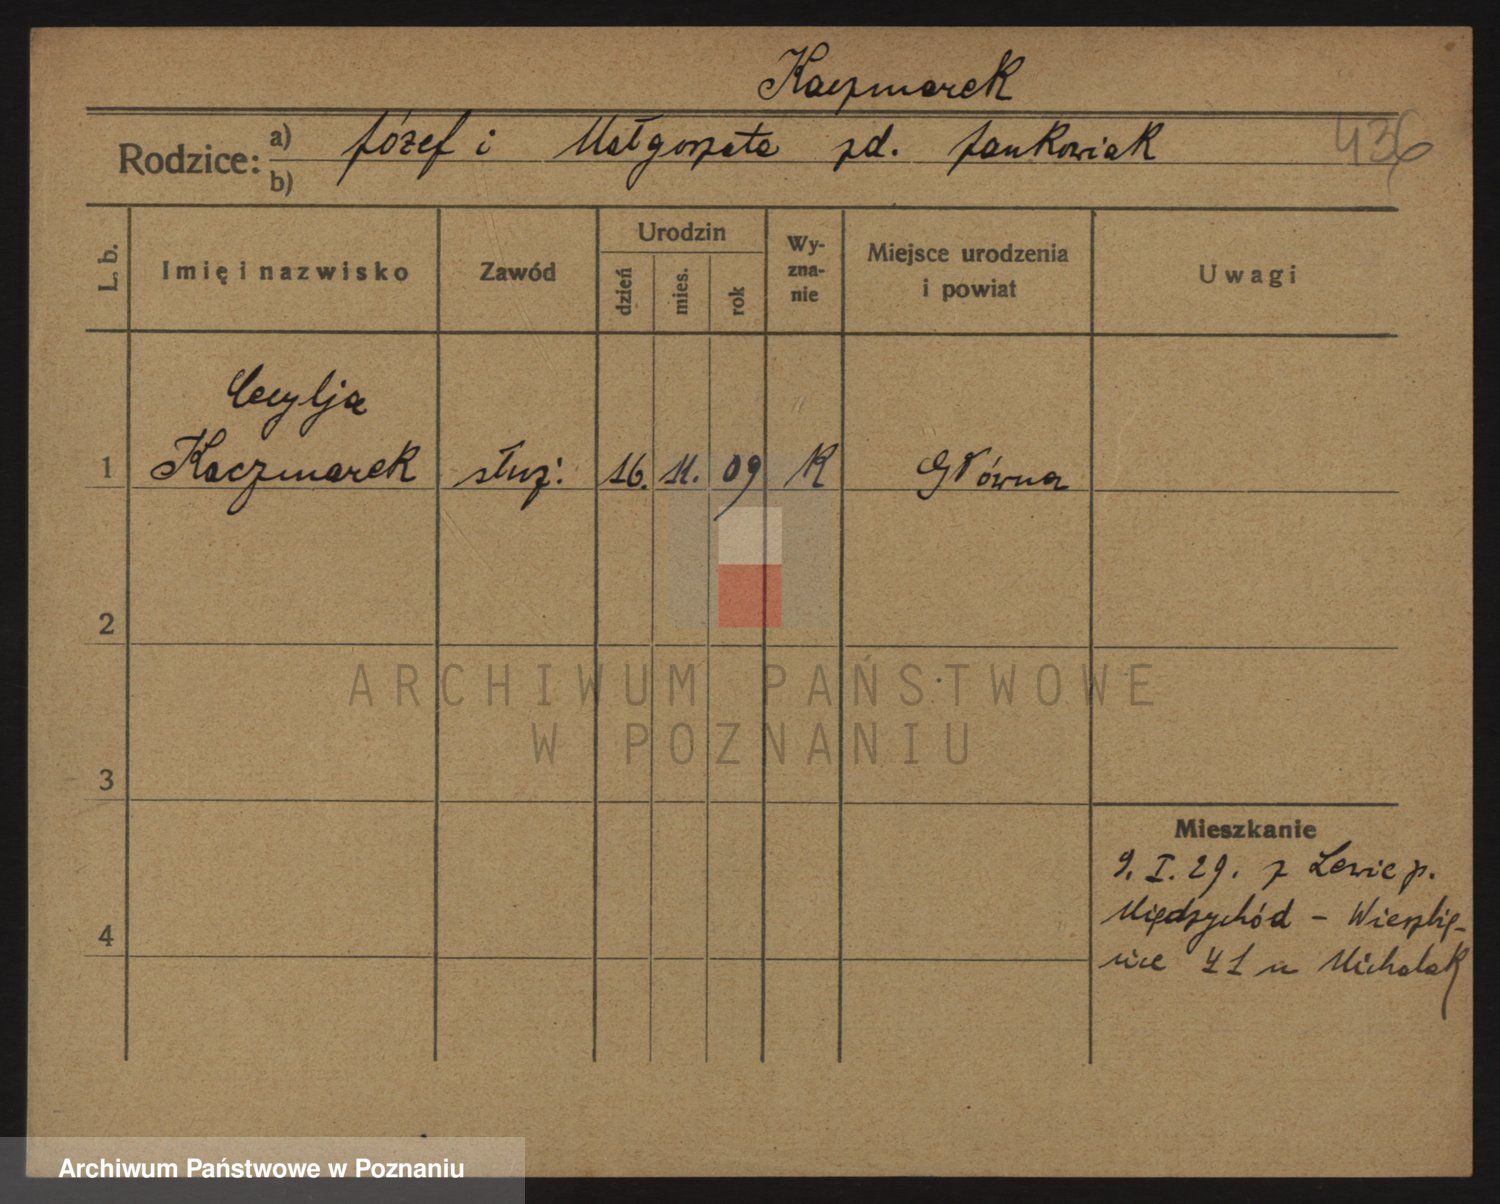 Kaczmarek
Rodzice: a) Józef i Małgorzata zd. Jankowiak
b)
436
L. b. Imię i nazwisko Zawód Urodzin dzień mies. rok Wyznanie Miejsce urodzenia i powiat Uwagi
Cecylja
1 Kaczmarek służ: 16. 11. 09 K Główna
2
ARCHIWUM PAŃSTWOWE
W POZNANIU
3
Mieszkanie
9. I. 29. z Lewic p.
Międzychód -
4
41 u Michalak
Archiwum Państwowe w Poznaniu